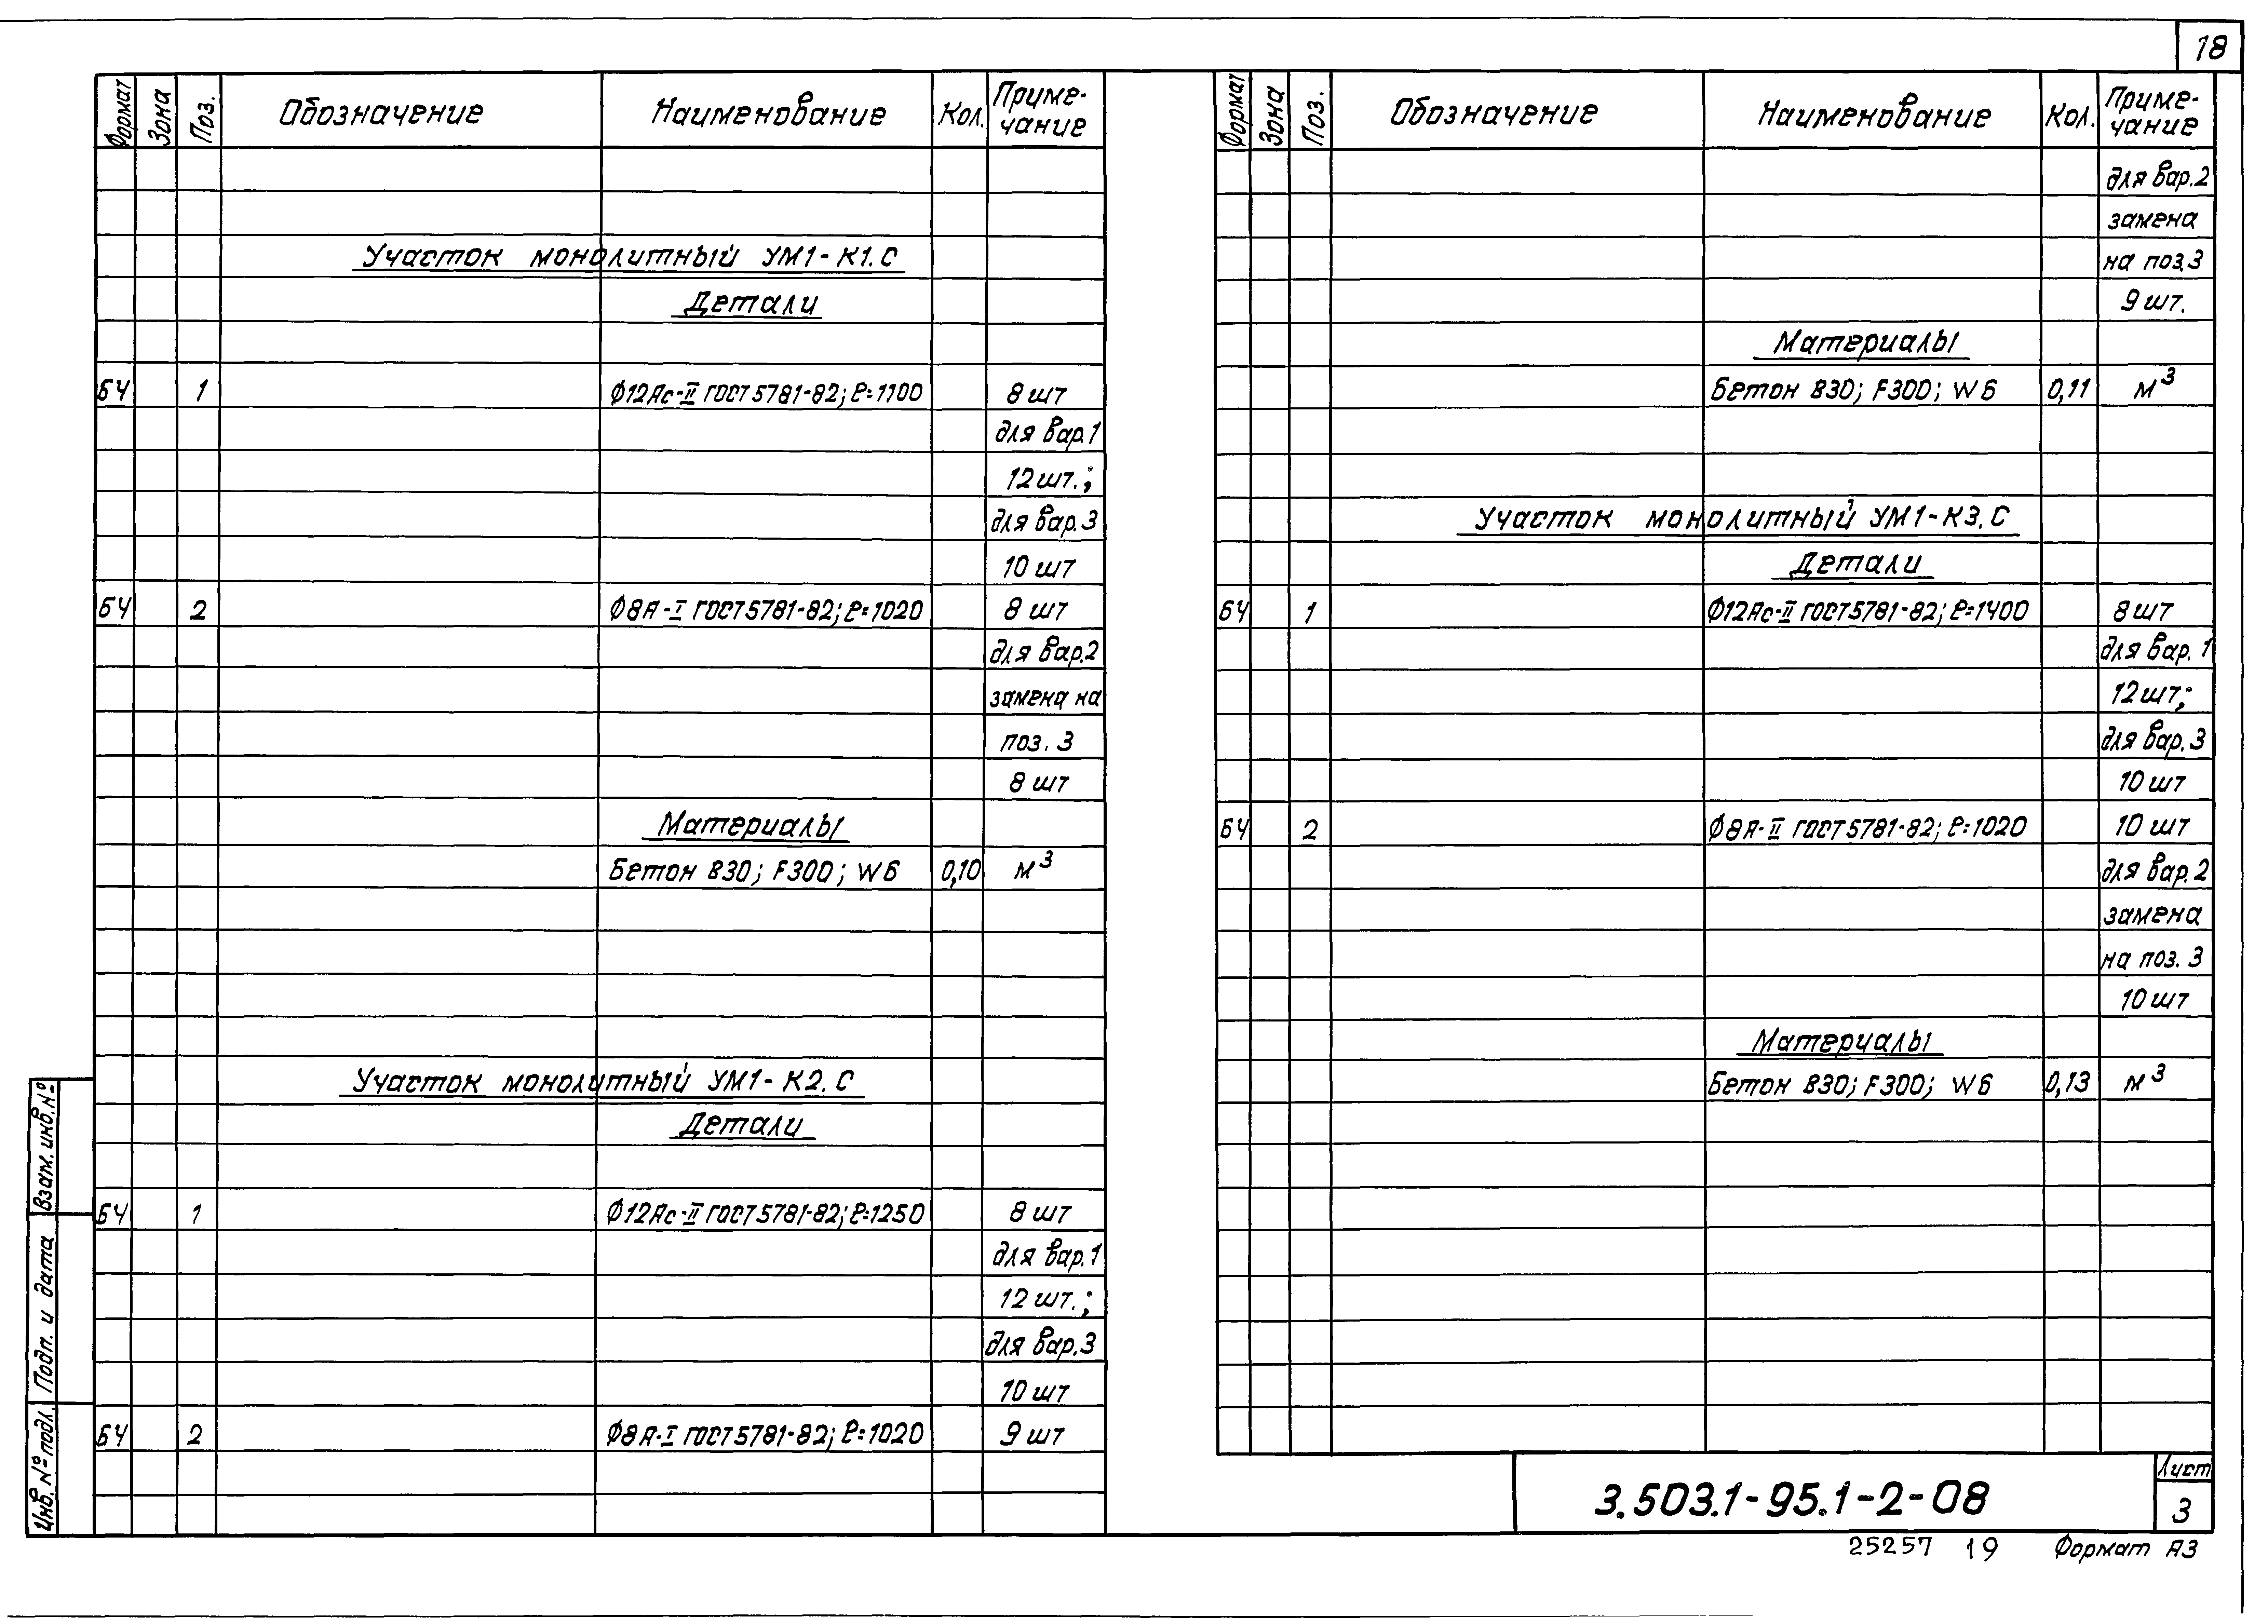 18
Формат Зона Поз. Обозначение Наименование Кол. Приме-
чание
Участок монолитный УМ1-К1.С
Детали
БЧ 1 Ф12Ас-II ГОСТ 5781-82; ℓ=1100 8 шт
для вар.1
12 шт.;
для вар.3
10 шт
БЧ 2 Ф8А-I ГОСТ 5781-82; ℓ=1020 8 шт
для вар.2
замена на
поз. 3
8 шт
Материалы
Бетон В30; F300; W6 0,10 м³
Участок монолитный УМ1-К2.С
Детали
БЧ 1 Ф12Ас-II ГОСТ 5781-82; ℓ=1250 8 шт
для вар.1
12 шт.;
для вар.3
10 шт
БЧ 2 Ф8А-I ГОСТ 5781-82; ℓ=1020 9 шт
Формат Зона Поз. Обозначение Наименование Кол. Приме-
чание
для вар.2
замена
на поз.3
9 шт.
Материалы
Бетон В30; F300; W6 0,11 м³
Участок монолитный УМ1-К3.С
Детали
БЧ 1 Ф12Ас-II ГОСТ 5781-82; ℓ=1400 8 шт
для вар. 1
12 шт;
для вар. 3
10 шт
БЧ 2 Ф8А-II ГОСТ 5781-82; ℓ=1020 10 шт
для вар. 2
замена
на поз. 3
10 шт
Материалы
Бетон В30; F300; W6 0,13 м³
Взам. инв. №
Подп. и дата
Инв. № подл.
3.503.1-95.1-2-08
Лист
3
25257 19 Формат А3